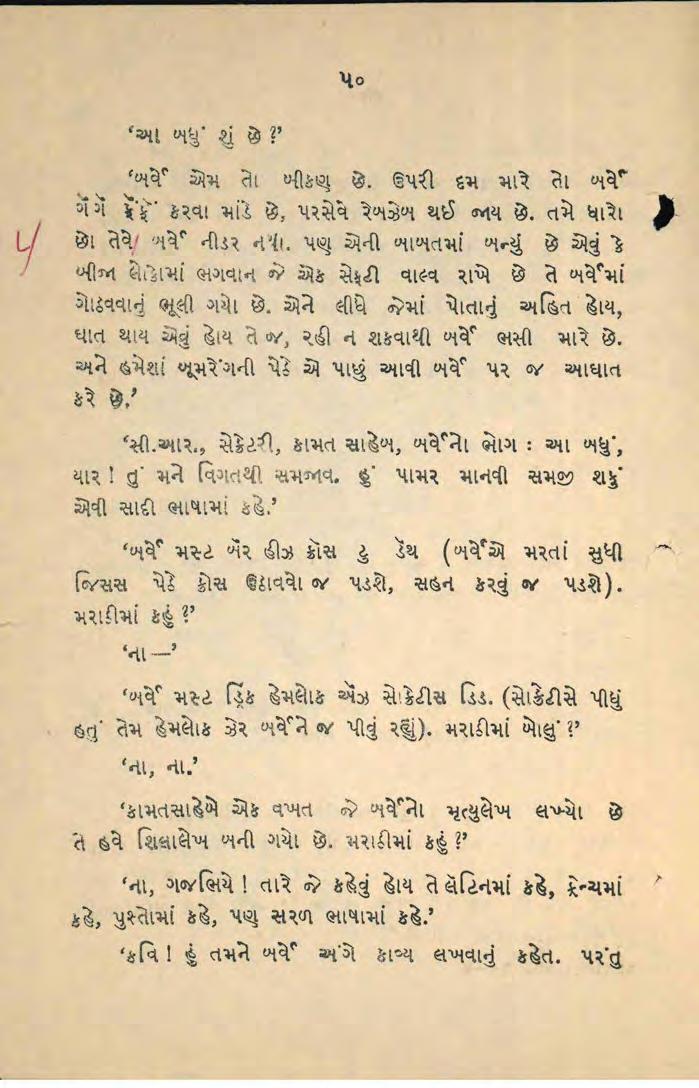 ૫૦
‘આ બધું શું છે ?’
‘બર્વે એમ તો બીકણ છે. ઉપરી દમ મારે તો બર્વે
ગેં ગેં ફેં ફેં કરવા માંડે છે, પરસેવે રેબઝેબ થઈ જાય છે. તમે ધારો
છો તેવો બર્વે નીડર નથી. પણ એની બાબતમાં બન્યું છે એવું કે
બીજા લોકોમાં ભગવાન જે એક સેફ્ટી વાલ્વ રાખે છે તે બર્વેમાં
ગોઠવવાનું ભૂલી ગયો છે. એને લીધે જેમાં પોતાનું અહિત હોય,
ઘાત થાય એવું હોય તે જ, રહી ન શકવાથી બર્વે ભસી મારે છે.
અને હમેશાં બૂમરેંગની પેઠે એ પાછું આવી બર્વે પર જ આઘાત
કરે છે.’
‘સી.આર., સેક્રેટરી, કામત સાહેબ, બર્વેનો ભોગ : આ બધું,
યાર ! તું મને વિગતથી સમજાવ. હું પામર માનવી સમજી શકું
એવી સાદી ભાષામાં કહે.’
‘બર્વે મસ્ટ બૅર હીઝ ક્રોસ ટુ ડેથ (બર્વેએ મરતાં સુધી
જિસસ પેઠે ક્રોસ ઉઠાવવો જ પડશે, સહન કરવું જ પડશે).
મરાઠીમાં કહું ?’
‘ના —’
‘બર્વે મસ્ટ ડ્રિંક હેમલોક ઍઝ સોક્રેટીસ ડિડ. (સોક્રેટીસે પીધું
હતું તેમ હેમલોક ઝેર બર્વેને જ પીવું રહ્યું). મરાઠીમાં બોલું ?’
‘ના, ના.’
‘કામતસાહેબે એક વખત જે બર્વેનો મૃત્યુલેખ લખ્યો છે
તે હવે શિલાલેખ બની ગયો છે. મરાઠીમાં કહું ?’
‘ના, ગજભિયે ! તારે જે કહેવું હોય તે લૅટિનમાં કહે, ફ્રેન્ચમાં
કહે, પુશ્તોમાં કહે, પણ સરળ ભાષામાં કહે.’
‘કવિ ! હું તમને બર્વે અંગે કાવ્ય લખવાનું કહેત. પરંતુ